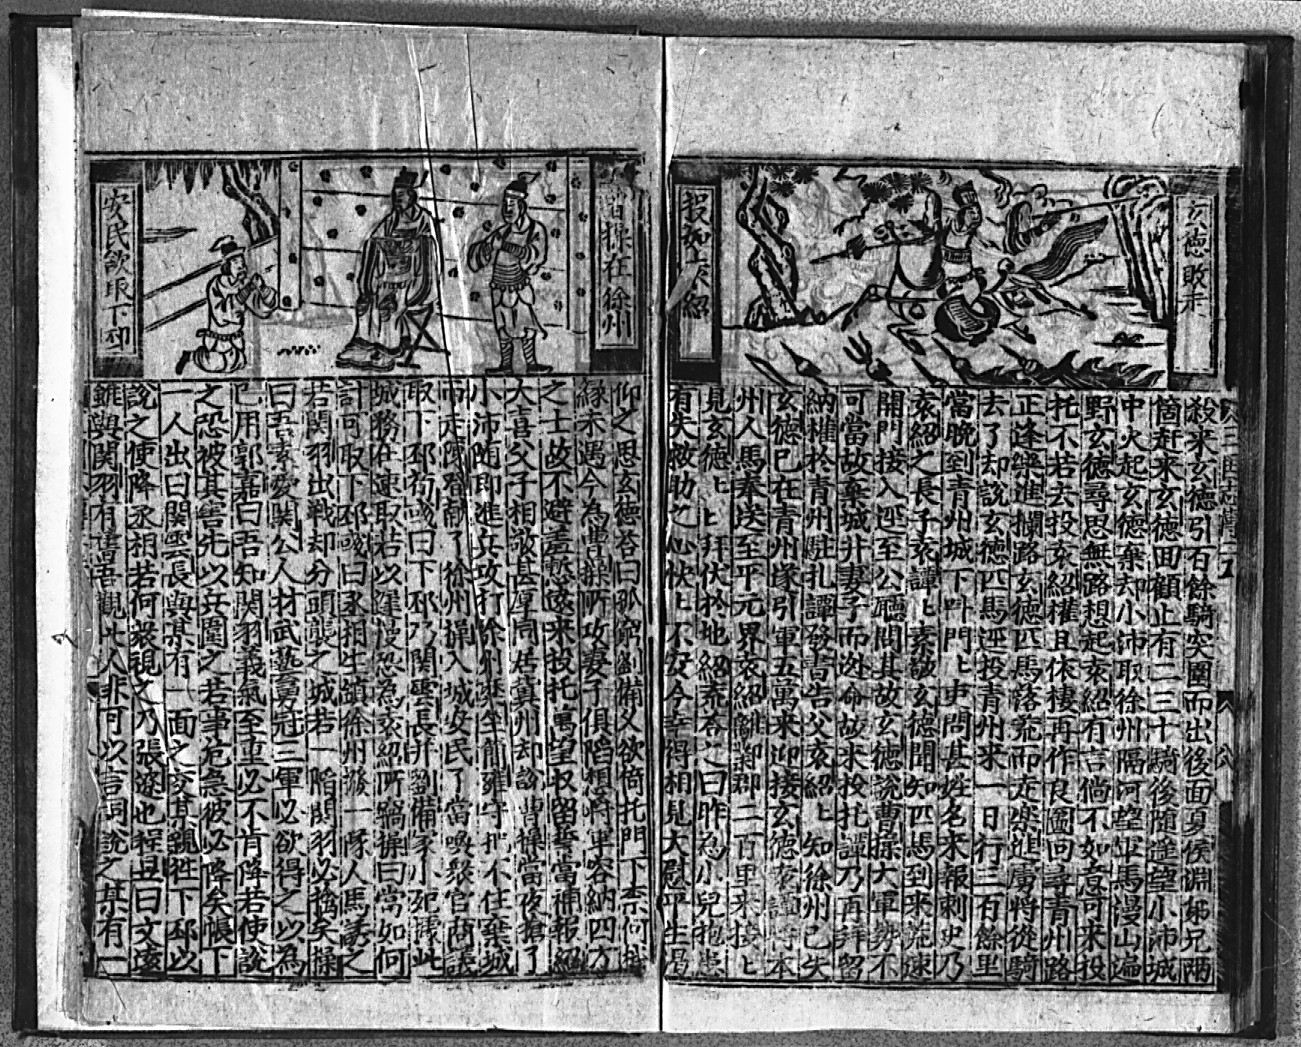 玄德敗走
投袁紹
殺來玄德引百餘騎突圍而出後面夏侯淵弟兄兩
箇赶來玄德回顧止有二三十騎後隨遥望小沛城
中火起玄德棄却小沛取徐州隔河望軍馬漫山遍
野玄德尋思無路想起袁紹有言倘不如意可來投
托不若去投袁紹權且依棲再作良圖向尋青州路
正逢樂進攔路玄德匹馬落荒而走樂進虜將從騎
去了却説玄德匹馬逕投青州來一日行三百餘里
當晚到青州城下叫門上吏問甚姓名來報刺史乃
袁紹之長子袁譚上素敬玄德聞知匹馬到來荒速
開門接入逕至公廳問其故玄德說曹操大軍勢不
可當故棄城并妻子而迯命故來投托譚乃再拜留
納權於青州駐扎譚發書告父袁紹上知徐州已失
玄德已在青州遂引軍五萬來迎接玄德袁譚將本
州人馬奉送至平元界袁紹離鄴郡二百里來接上
見玄德上上拜伏於地紹荒答之曰昨為小兒抱患
有失救助之心怏上不安今幸得相見大慰平生渴
曹操在徐州
安民欲取下邳
仰之思玄德答曰孤窮劉備久欲倚托門下柰何
緣未遇今為曹操所攻妻子俱陷想將軍容納四方
之士故不避羞慚遠來投托萬望收留誓當補報紹
大喜父子相敬甚厚同居冀州却說曹操當夜搶了
小沛随即進兵攻打徐州糜竺簡雍守把不住棄城
而走陳登獻了徐州操入城安民了當喚衆官商議
取下邳荀彧曰下邳乃關雲長并劉備家小死據此
城務在速取若以遲慢恐為袁紹所竊操曰當如何
計可取下邳彧曰丞相生鎮徐州發一隊人馬誘之
若關羽出戰却分頭襲之城若一陷關羽必擒矣操
曰吾素愛關公人材武藝勇冠三軍必欲得之以為
己用郭嘉曰吾知関羽義氣至重必不肯降若使說
之恐被其害先以兵圍之若事危急彼必降矣帳下
一人出曰関雲長與某有一面之交某親往下邳以
說之使降丞相若何衆視之乃張遼也程昱曰文遠
雖與関羽有舊吾觀此人非可以言詞說之某有一